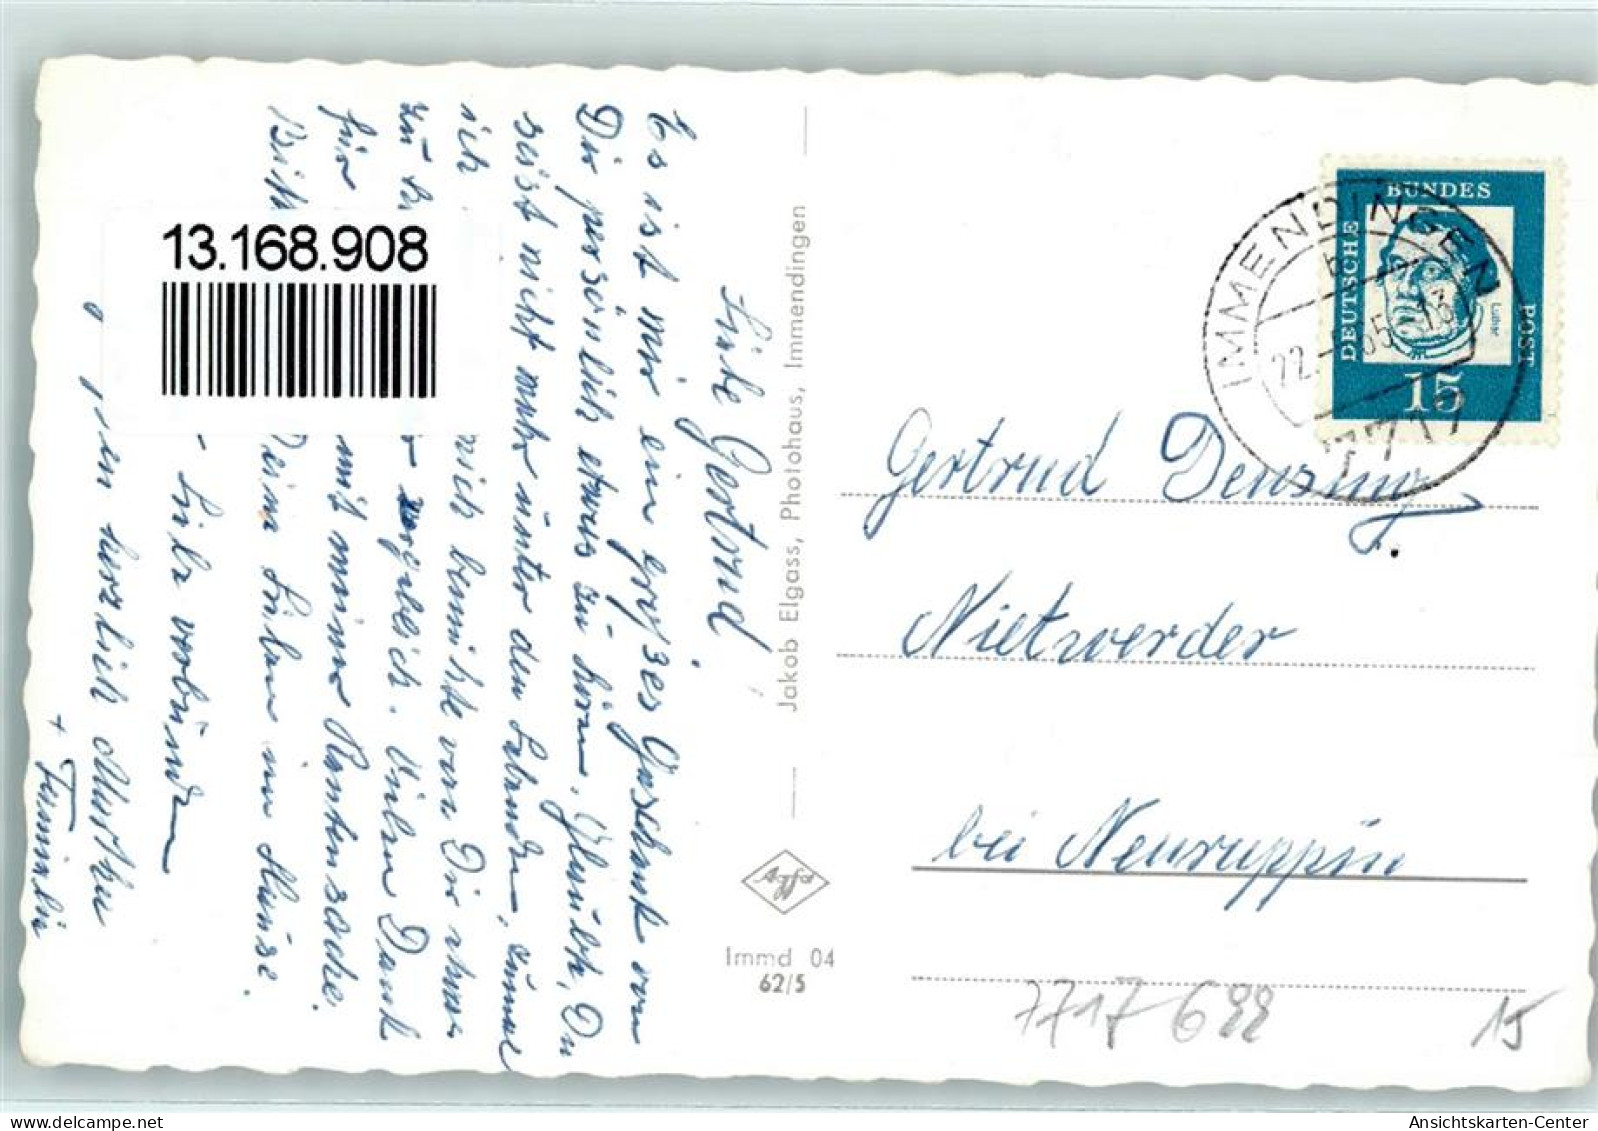 Liebe Gertrud
Es ist mir ein großes Geschenk von
Dir persönlich etwas zu hören. Glaubte, Du
seist nicht mehr unter den Lebenden, zumal
ich mich bemühte von Dir etwas
zu vergeblich. Vielen Dank
für mit meiner Rentensache.
Bitte Deine Lieben im Hause.
Liebe verbunden
herzlich
+ Familie
13.168.908
Jakob Elgass, Photohaus, Immendingen
Agfa
Immd 04
62/5
DEUTSCHE BUNDES POST
Luther
15
IMMENDINGEN
22. 65-13
7717
Gertrud Denzing
Nietwerder
bei Neuruppin
7717 622
15
Ansichtskarten-Center